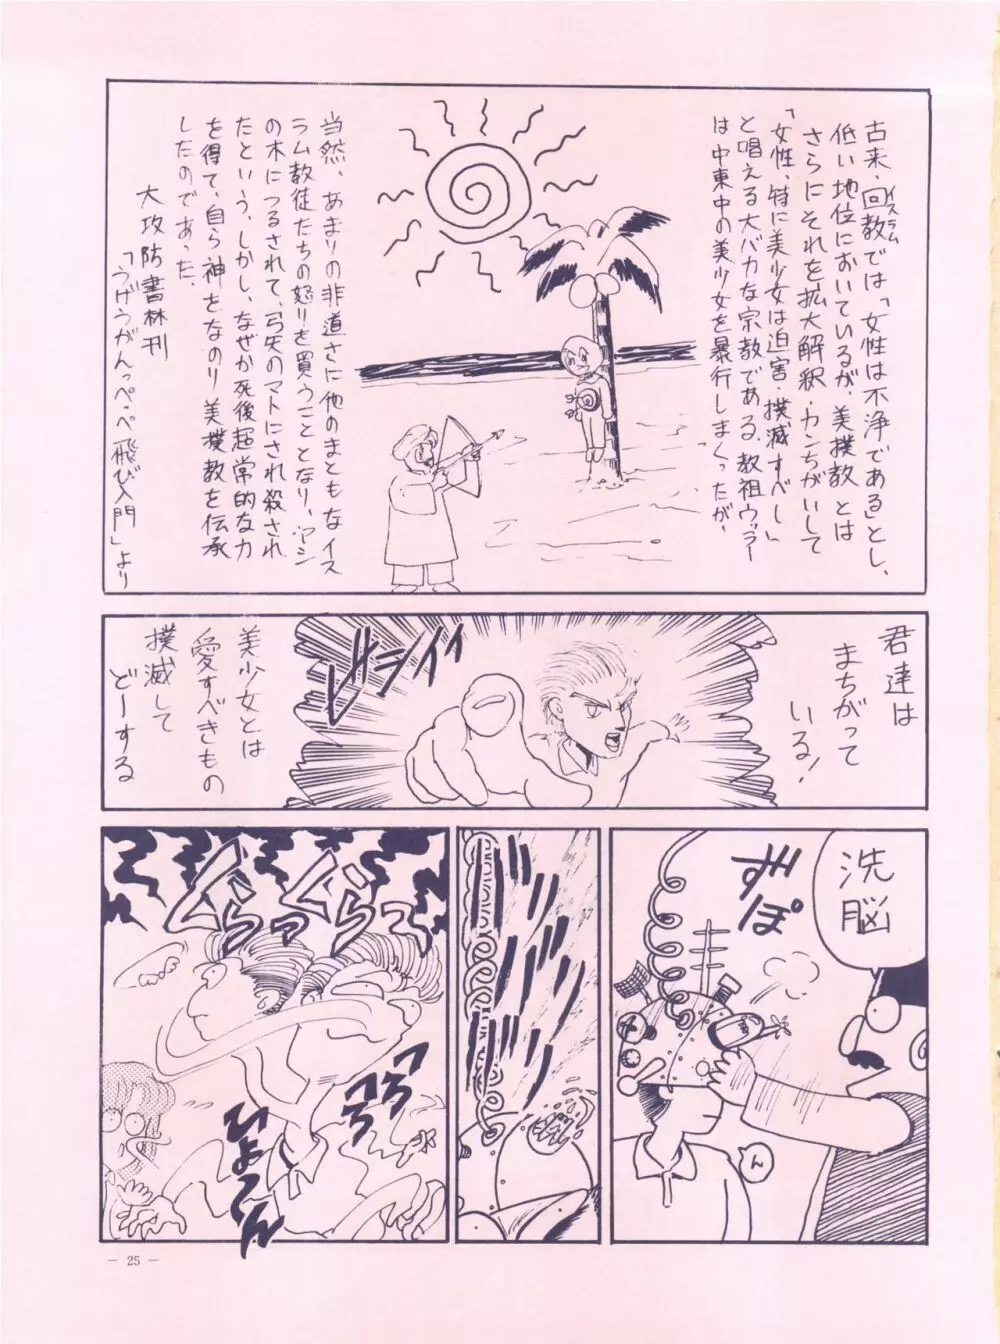 古来、回教では「女性は不浄である」とし、
イスラム
低い地位においているが、美撲教とは
さらにそれを拡大解釈・カンちがいして
「女性、特に美少女は迫害・撲滅すべし」
と唱える大バカな宗教である。教祖ウッラー
は中東中の美少女を暴行しまくったが、
当然、あまりの非道さに他のまともなイス
ラム教徒たちの怒りを買うこととなり、ヤシ
の木につるされて、弓矢のマトにされ殺され
たという。しかし、なぜか死後超常的な力
を得て、自ら神をなのり美撲教を伝承
したのであった。
大攻防書林刊
「うげうがんっぺぺ飛び入門」より
君達は
まちがって
いる!
ビシイィ
美少女とは
愛すべきもの
撲滅して
どーする
洗脳
ずぽ
ん
ぐらァ
ぐらっ
コロコロ
ひょーん
— 25 —